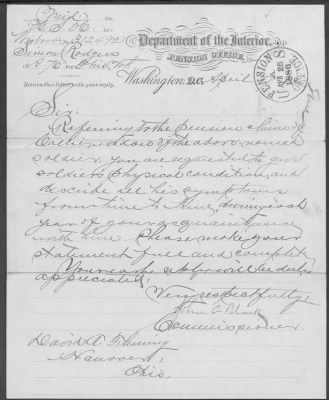 Department of the Interior,
PENSION OFFICE,
Simon Rodgers
Washington, D.C., April
Return this letter with your reply.
Sir:
Referring to the pension claim of
widow of the above named
soldier, you are requested to give
soldier's physical condition, and
describe all his symptoms
from time to time, during each
year of your acquaintance
with him. Please make your
statement full and complete.
Your early reply will be duly
appreciated.
Very respectfully,
John C. Black
Commissioner.
David A. Fleming
Hanover,
Ohio.